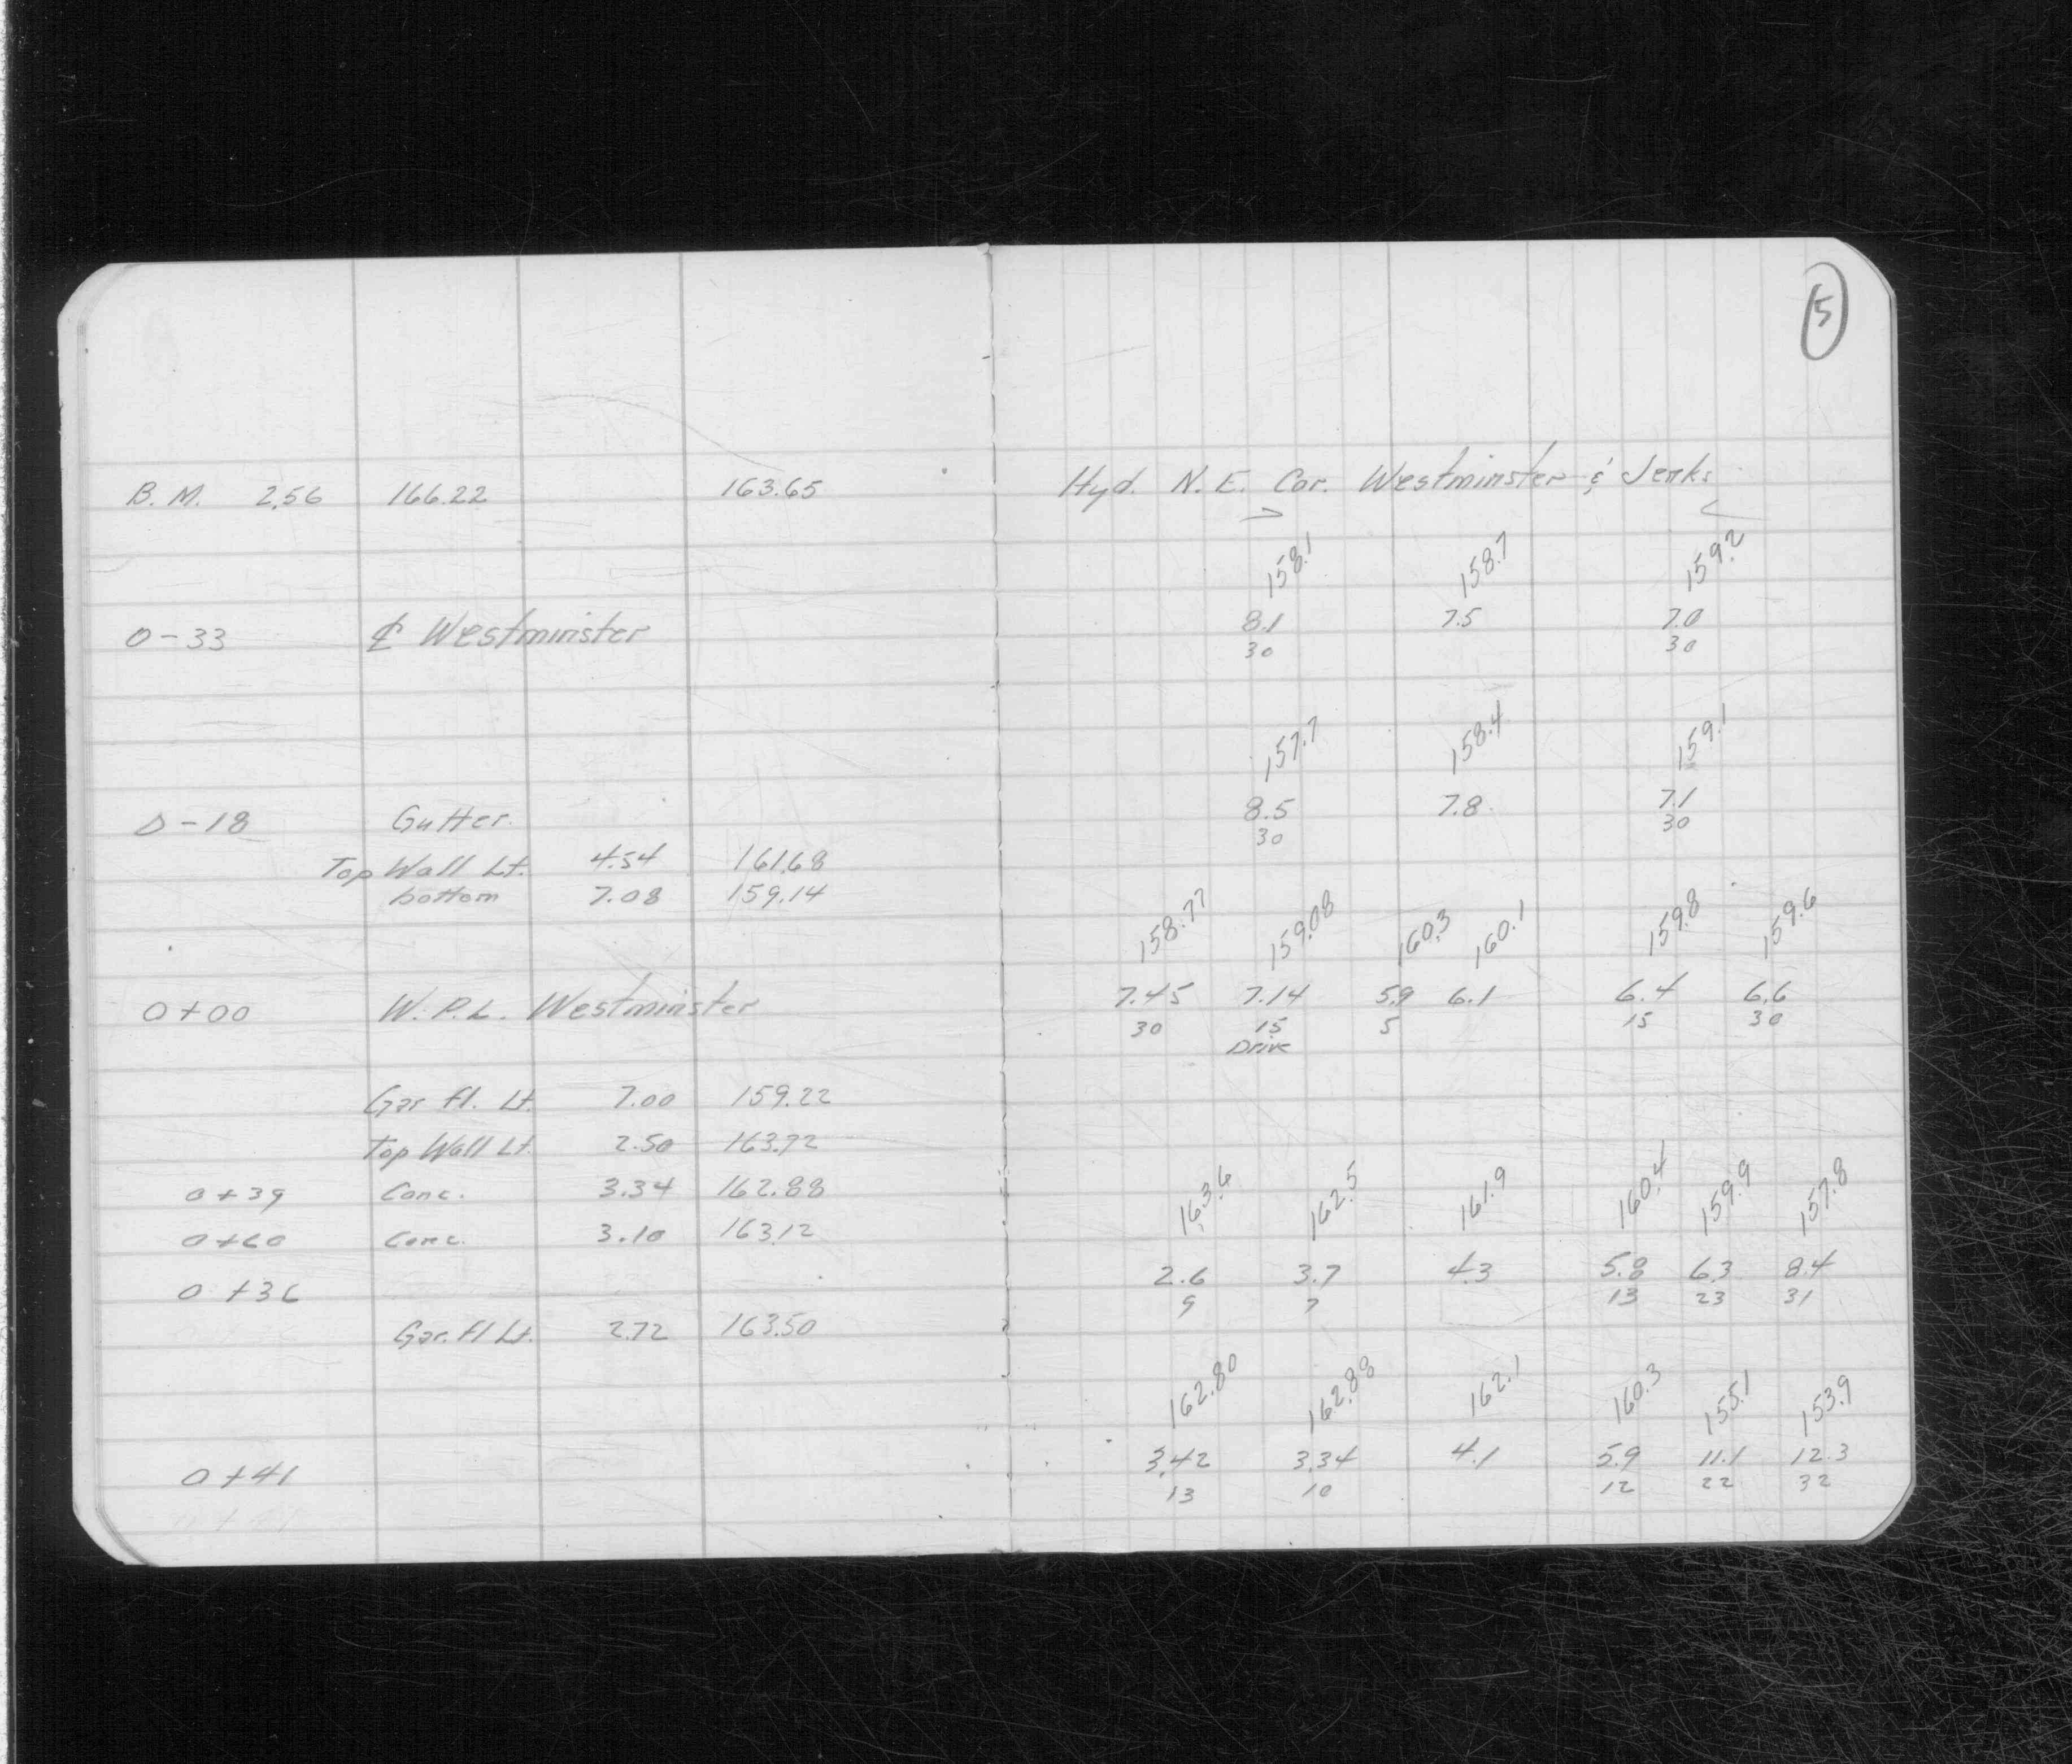 5
B. M. 2.56 166.22 163.65 Hyd. N. E. Cor. Westminster & Jenks
158.1 158.7 159.2
0-33 ₵ Westminster 8.1 7.5 7.0
30 30
157.7 158.4 159.1
0-18 Gutter 8.5 7.8 7.1
30 30
Top Wall Lt. 4.54 161.68
bottom 7.08 159.14
158.77 159.08 160.3 160.1 159.8 159.6
0+00 W. P. L. Westminster 7.45 7.14 5.9 6.1 6.4 6.6
30 15 5 15 30
Drive
Gar fl. Lt. 7.00 159.22
Top Wall Lt. 2.50 163.72
0+39 Conc. 3.34 162.88
163.6 162.5 161.9 160.4 159.9 157.8
0+60 Conc. 3.10 163.12
0+36 2.6 3.7 4.3 5.8 6.3 8.4
9 7 13 23 31
Gar. fl Lt. 2.72 163.50
162.80 162.88 162.1 160.3 155.1 153.9
0+41 3.42 3.34 4.1 5.9 11.1 12.3
13 10 12 22 32